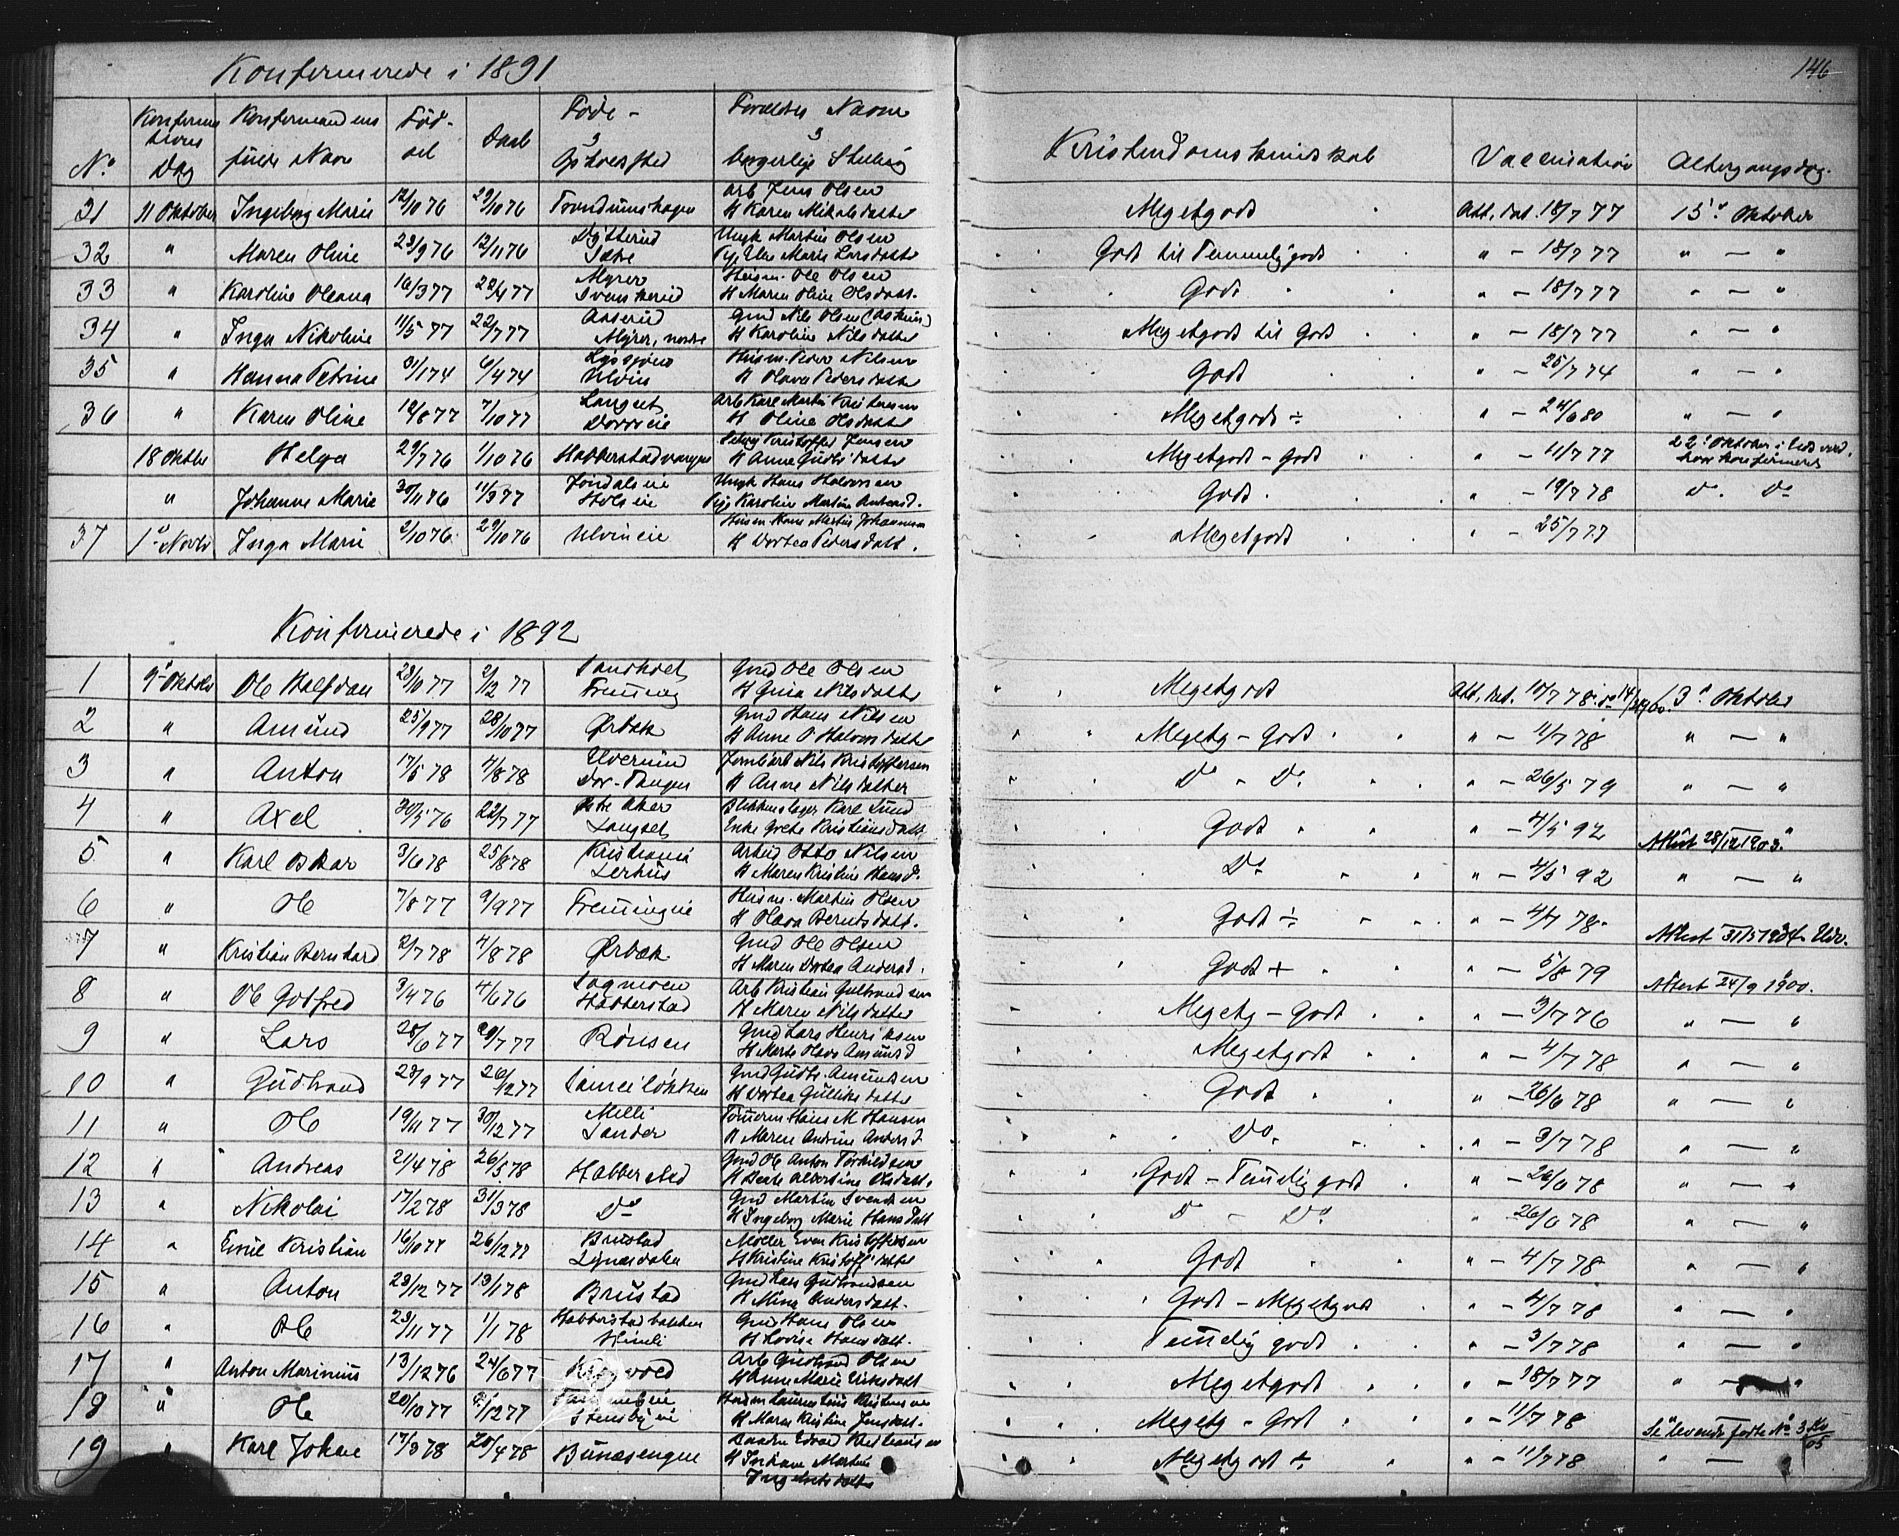 146
Konfirmerede i 1891
No. Konfirmationsdag Konfirmandens fulde Navn Fødsel Daab Føde- & Opholdssted Forældres Navne & borgerlige Stilling Kristendomskundskab Vaccination Altergangsdag.
31 11 Oktober Ingeborg Marie 12/10 76 29/10 76 Arb Jens Olsen H Karen Mikalsdatter Megetgodt Att. dat. 18/7 77 15d Oktober
32 " Maren Oline 23/9 76 12/11 76 Ungk Martin Olsen Godt til Temmeliggodt " — 18/7 77 " — "
33 " Karoline Oleana 16/3 77 22/4 77 Myrer Husm. Ole Olsen H Maren Oline Olsdatt. Godt " — 18/7 77 " — "
34 " Inga Nikoline 11/5 77 22/7 77 Aaserud Myrer, nordre Gmd Nils Olsen H Karoline Nilsdatter Megetgodt til Godt " — 18/7 77 " — "
35 " Hanna Petrine 31/1 74 6/4 74 Ulvin Husm. Peder Nilsen H Olava Pedersdatter Godt " — 25/7 74 " — "
36 " Karen Oline 12/8 77 7/10 77 Langset Dorrvie Arb Karl Martin Kristiansen H Oline Olsdatter Megetgodt ÷ " — 24/6 80 " — "
18 Oktbr Helga 29/7 76 1/10 76 Habberstadvangen Kristoffer Jensen H Anne Gudbr.datter Megetgodt – Godt " — 11/7 77 22d Oktober i Eidsvold, hvor konfirmeret
" Johanne Marie 30/11 76 11/3 77 Jøndalseie Holseie Ungk Hans Halvorsen Pig Karoline Martine Andersd. Godt " — 19/7 78 Do. Do
37 1d Novbr Inga Marie 2/10 76 29/10 76 Ulvineie Husm Hans Martin Johannesen H Dortea Pedersdatt. Megetgodt " — 25/7 77
Konfirmerede i 1892
1 9d Oktober Ole Halfdan 23/10 77 2/12 77 Sandholt Gmd Ole Olsen H Gina Nilsdatter Megetgodt Att. dat. 10/7 78 13d Oktober
2 " Amund 25/9 77 28/10 77 Ørbæk Gmd Hans Nilsen H Anne O Halvorsdatter Megetg – Godt " — 11/7 78 " — "
3 " Anton 17/5 78 4/8 78 Ulverud Dor-Tangen Jernbarb Nils Kristoffersen H Anne Nilsdatter Do – Do " — 26/5 79 " — "
4 " Axel 30/5 76 22/7 77 Østre Aker Langset Blikkenslager Karl Lund Enke Grete Kristiansdatt. Godt " — 4/5 92 " — "
Attest 28/12 1903.
5 " Karl Oskar 3/6 78 25/8 78 Kristiania Lerhus Arbeid Otto Nilsen H Maren Kristine Hansd. Do " — 4/5 92 " — "
6 " Ole 7/8 77 9/9 77 Fremingeie Husm. Martin Olsen H Olava Berntsdatt. Godt ÷ " — 4/7 78.
Attest 31/5 1904 Udv.
7 " Kristian Bernhard 2/7 78 4/8 78 Ørbæk Gmd Ole Olsen H Maren Dortea Andersd. Godt + " — 5/8 79
Attest 24/9 1900.
8 " Ole Gotfred 3/4 76 4/6 76 Sagmoen Habberstad Arb Kristian Gulbrandsen H Maren Nilsdatter Megetg – Godt " — 3/7 76 " — "
9 " Lars 25/6 77 29/7 77 Rønsen Gmd Lars Henriksen H Marte Olava Amundsd Megetgodt " — 4/7 78 " — "
10 " Gudbrand 23/9 77 26/12 77 Gmd Gudbr. Amundsen H Dortea Gulliksdatter Godt " — 26/6 78 " — "
11 " Ole 19/11 77 30/12 77 Milli Sander Tømrerm. Hans M Hansen H Maren Andrine Andersd Do. " — 3/7 78 " — "
12 " Andreas 21/4 78 26/5 78 Habberstad Gmd Ole Anton Torkildsen H Beate Albertine Olsdatt. Godt – Temeliggodt " — 26/6 78 " — "
13 " Nikolai 17/2 78 31/3 78 Do Gmd Martin Svendsen H Ingeborg Marie Hansdatt Do – Do " — 26/6 78 " — "
14 " Emil Kristian 16/10 77 26/12 77 Brustad Møller Even Kristoffersen H Kristine Kristoff.datter Godt " — 4/7 78 " — "
15 " Anton 23/12 77 13/1 78 Brustad Gmd Lars Gudbrandsen H Mina Andersdatt. Godt – Megetgodt " — 4/7 78 " — "
16 " Ole 23/11 77 1/1 78 Habberstadbakken Himli Gmd Hans Olsen H Lovise Hansdatt. Temelig godt " — 3/7 78 " — "
17 " Anton Marinius 13/12 76 24/6 77 Arb Gudbrand Olsen H Anne Marie Eriksdatt Megetgodt " — 18/7 77 " — "
18 " Ole 20/10 77 9/12 77 Stensbyeie Husm Laurentius Kristensen H Maren Kristine Jensdatt. Megetg – Godt " — 11/7 78
Se levende fødte No 3
19 " Karl Johan 17/3 78 20/4 78 Bunæsengen Edvard Kristiansen H Inkane Martine Ingebretsdatter Megetgodt ÷ " — 11/7 78 " — "